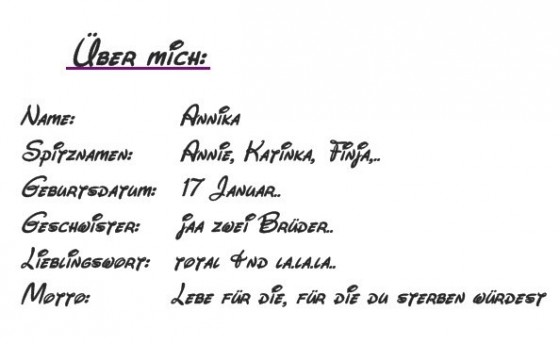 Über mich:
Name: Annika
Spitznamen: Annie, Katinka, Finja,..
Geburtsdatum: 17 Januar..
Geschwister: jaa zwei Brüder..
Lieblingswort: total &nd la.la.la..
Motto: Lebe für die, für die du sterben würdest